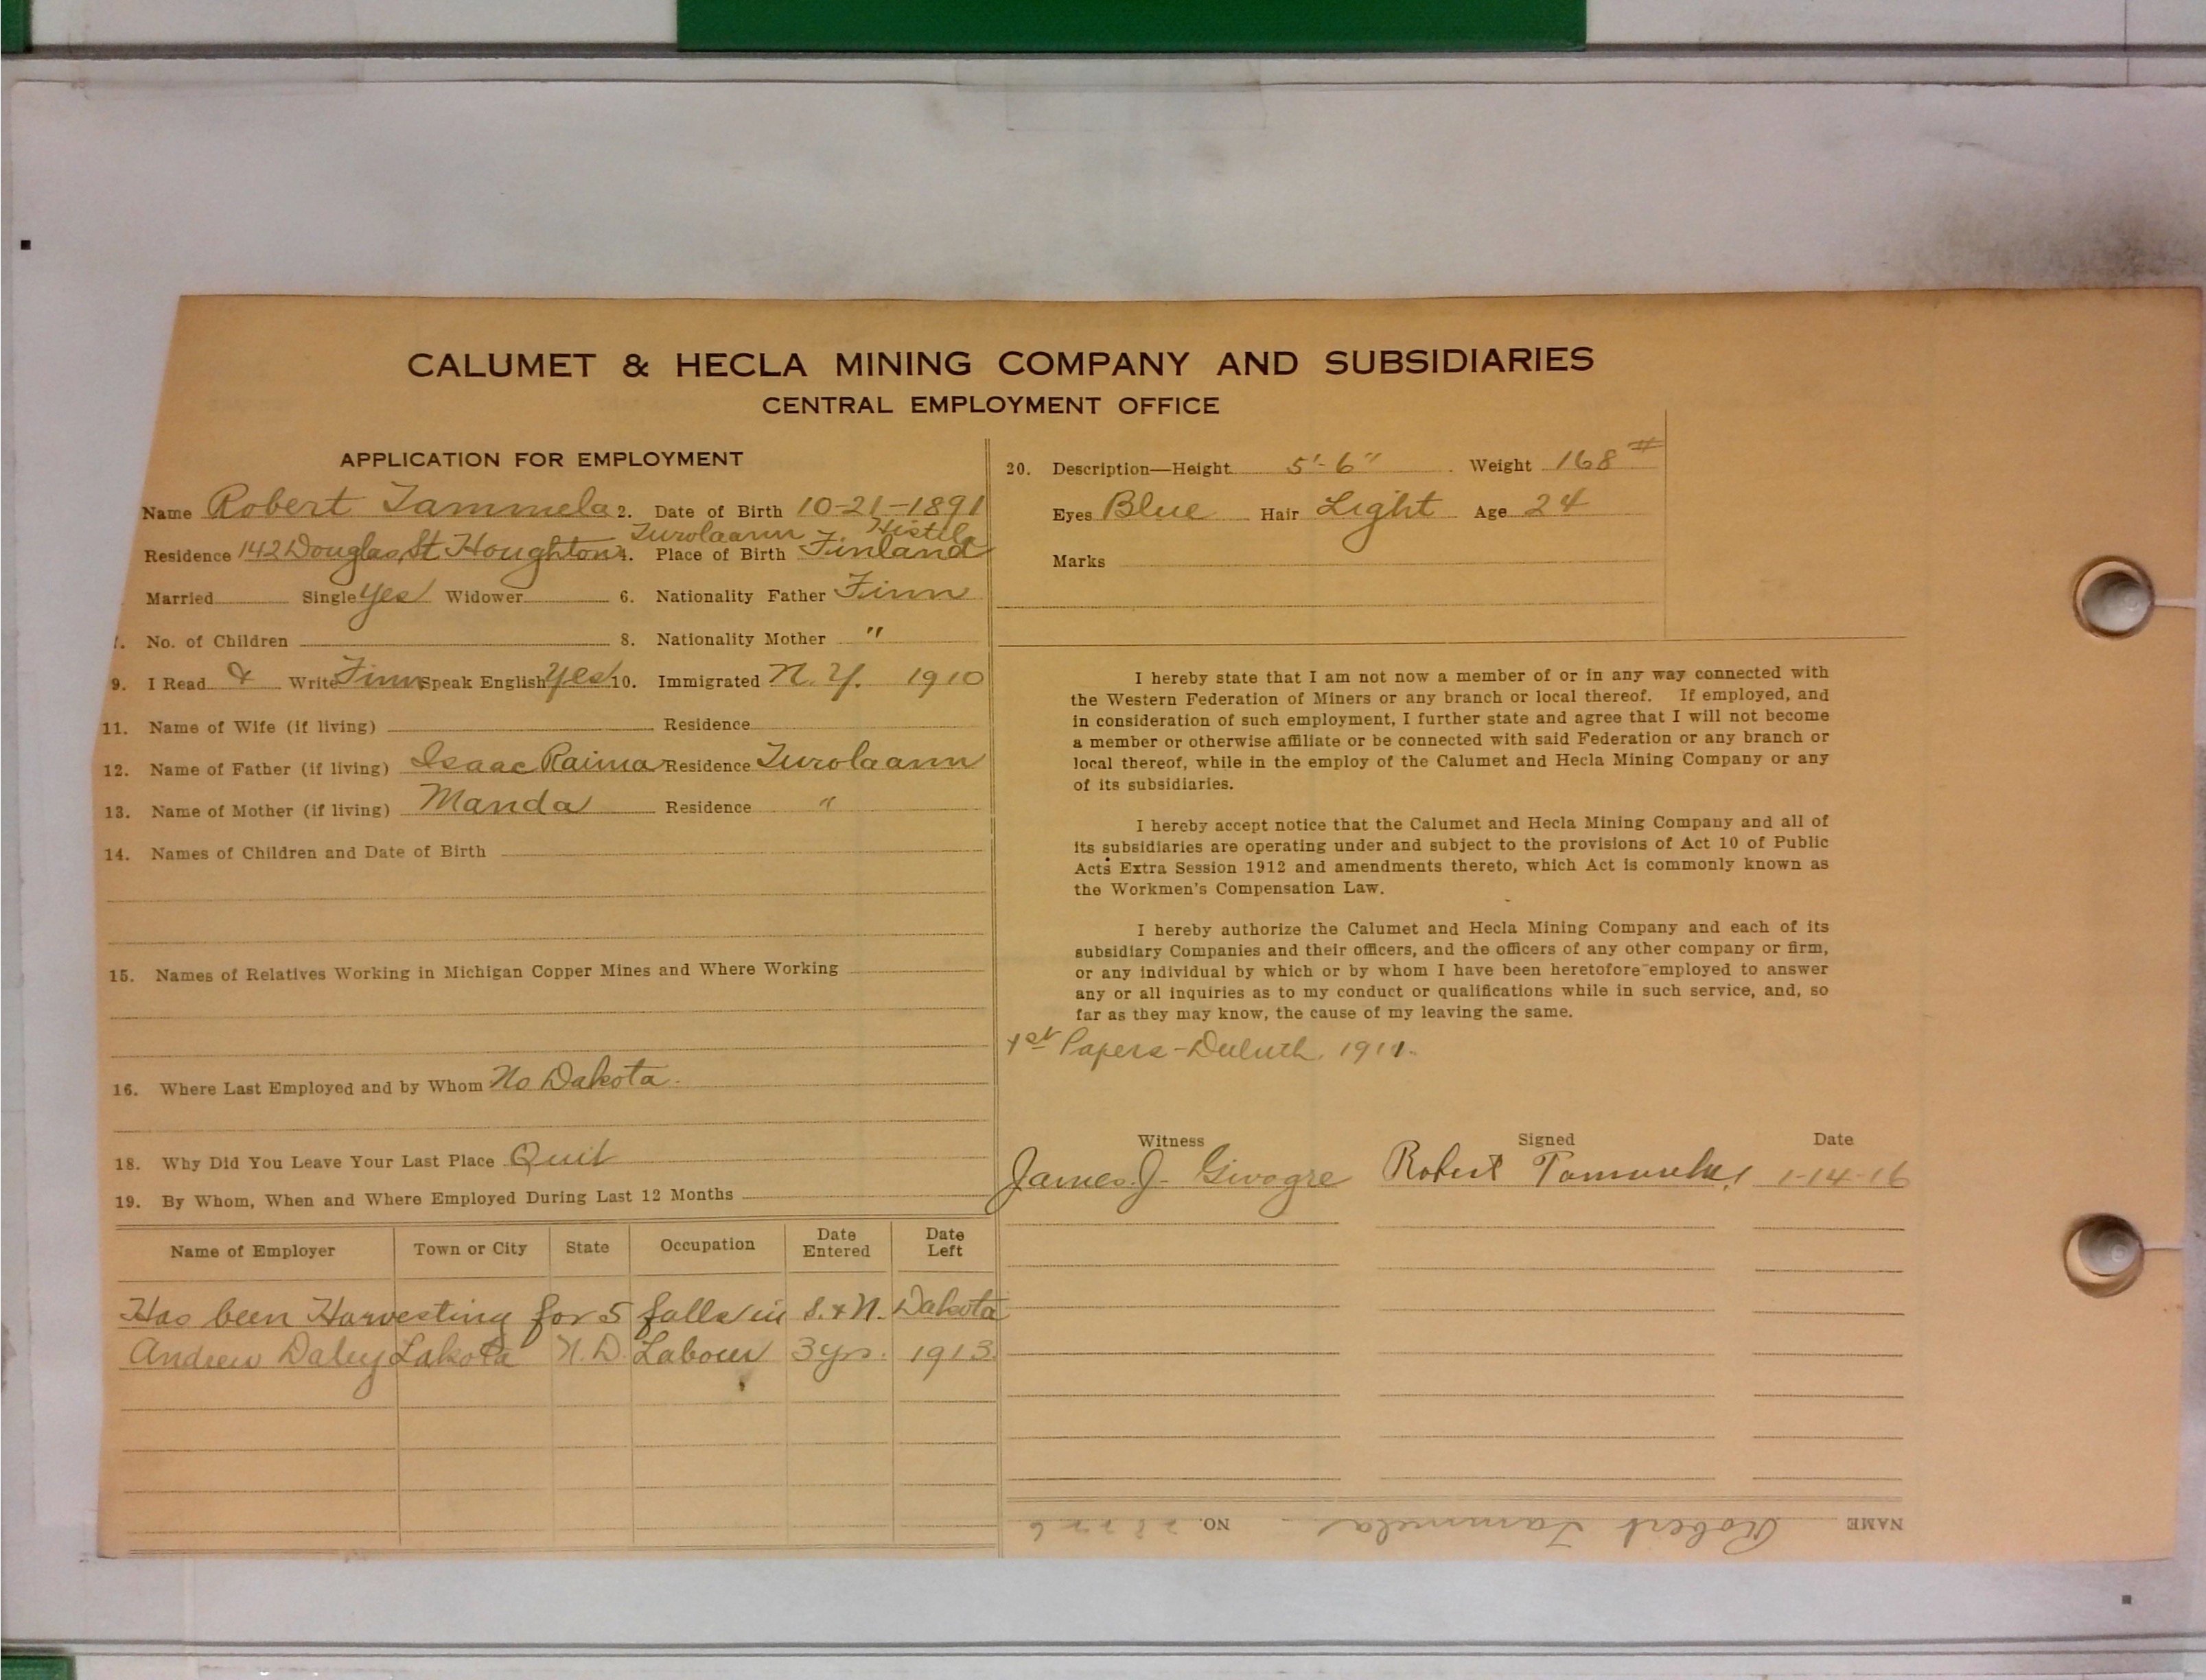 CALUMET & HECLA MINING COMPANY AND SUBSIDIARIES
CENTRAL EMPLOYMENT OFFICE
APPLICATION FOR EMPLOYMENT
Name Robert Tammela 2. Date of Birth 10-21-1891
Turolaann
Residence 142 Douglas St. Houghton 4. Place of Birth Finland
Married Single Yes Widower 6. Nationality Father Finn
No. of Children 8. Nationality Mother "
9. I Read & Write Finn Speak English Yes 10. Immigrated N. Y. 1910
11. Name of Wife (if living) Residence
12. Name of Father (if living) Isaac Raima Residence Turolaann
13. Name of Mother (if living) Manda Residence "
14. Names of Children and Date of Birth
15. Names of Relatives Working in Michigan Copper Mines and Where Working
16. Where Last Employed and by Whom No Dakota.
18. Why Did You Leave Your Last Place Quit
19. By Whom, When and Where Employed During Last 12 Months
Name of Employer Town or City State Occupation Date Entered Date Left
Has been Harvesting for 5 falls in S. & N. Dakota
Andrew Daley Lakota N.D. Labour 3 yrs. 1913
20. Description—Height 5'-6" Weight 168#
Eyes Blue Hair Light Age 24
Marks
I hereby state that I am not now a member of or in any way connected with
the Western Federation of Miners or any branch or local thereof. If employed, and
in consideration of such employment, I further state and agree that I will not become
a member or otherwise affiliate or be connected with said Federation or any branch or
local thereof, while in the employ of the Calumet and Hecla Mining Company or any
of its subsidiaries.
I hereby accept notice that the Calumet and Hecla Mining Company and all of
its subsidiaries are operating under and subject to the provisions of Act 10 of Public
Acts Extra Session 1912 and amendments thereto, which Act is commonly known as
the Workmen's Compensation Law.
I hereby authorize the Calumet and Hecla Mining Company and each of its
subsidiary Companies and their officers, and the officers of any other company or firm,
or any individual by which or by whom I have been heretofore employed to answer
any or all inquiries as to my conduct or qualifications while in such service, and, so
far as they may know, the cause of my leaving the same.
1st Papers - Duluth. 1911.
Witness Signed Date
James J. Robert 1-14-16
NAME Robert Tammela NO.